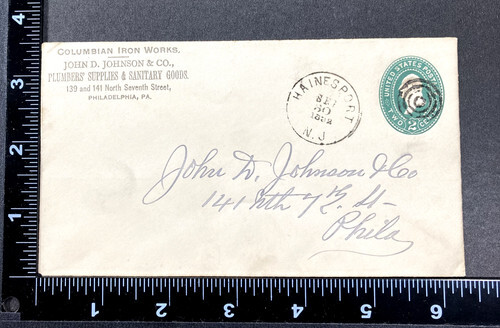 COLUMBIAN IRON WORKS,
JOHN D. JOHNSON & CO.,
PLUMBERS' SUPPLIES & SANITARY GOODS.
139 and 141 North Seventh Street,
PHILADELPHIA, PA.
HAINESPORT
SEP
30
N.J.
UNITED STATES POSTAGE
TWO 2 CENTS
John D. Johnson & Co
141 Nth 7th St
Phila
4
3
2
1
1
2
3
4
5
6